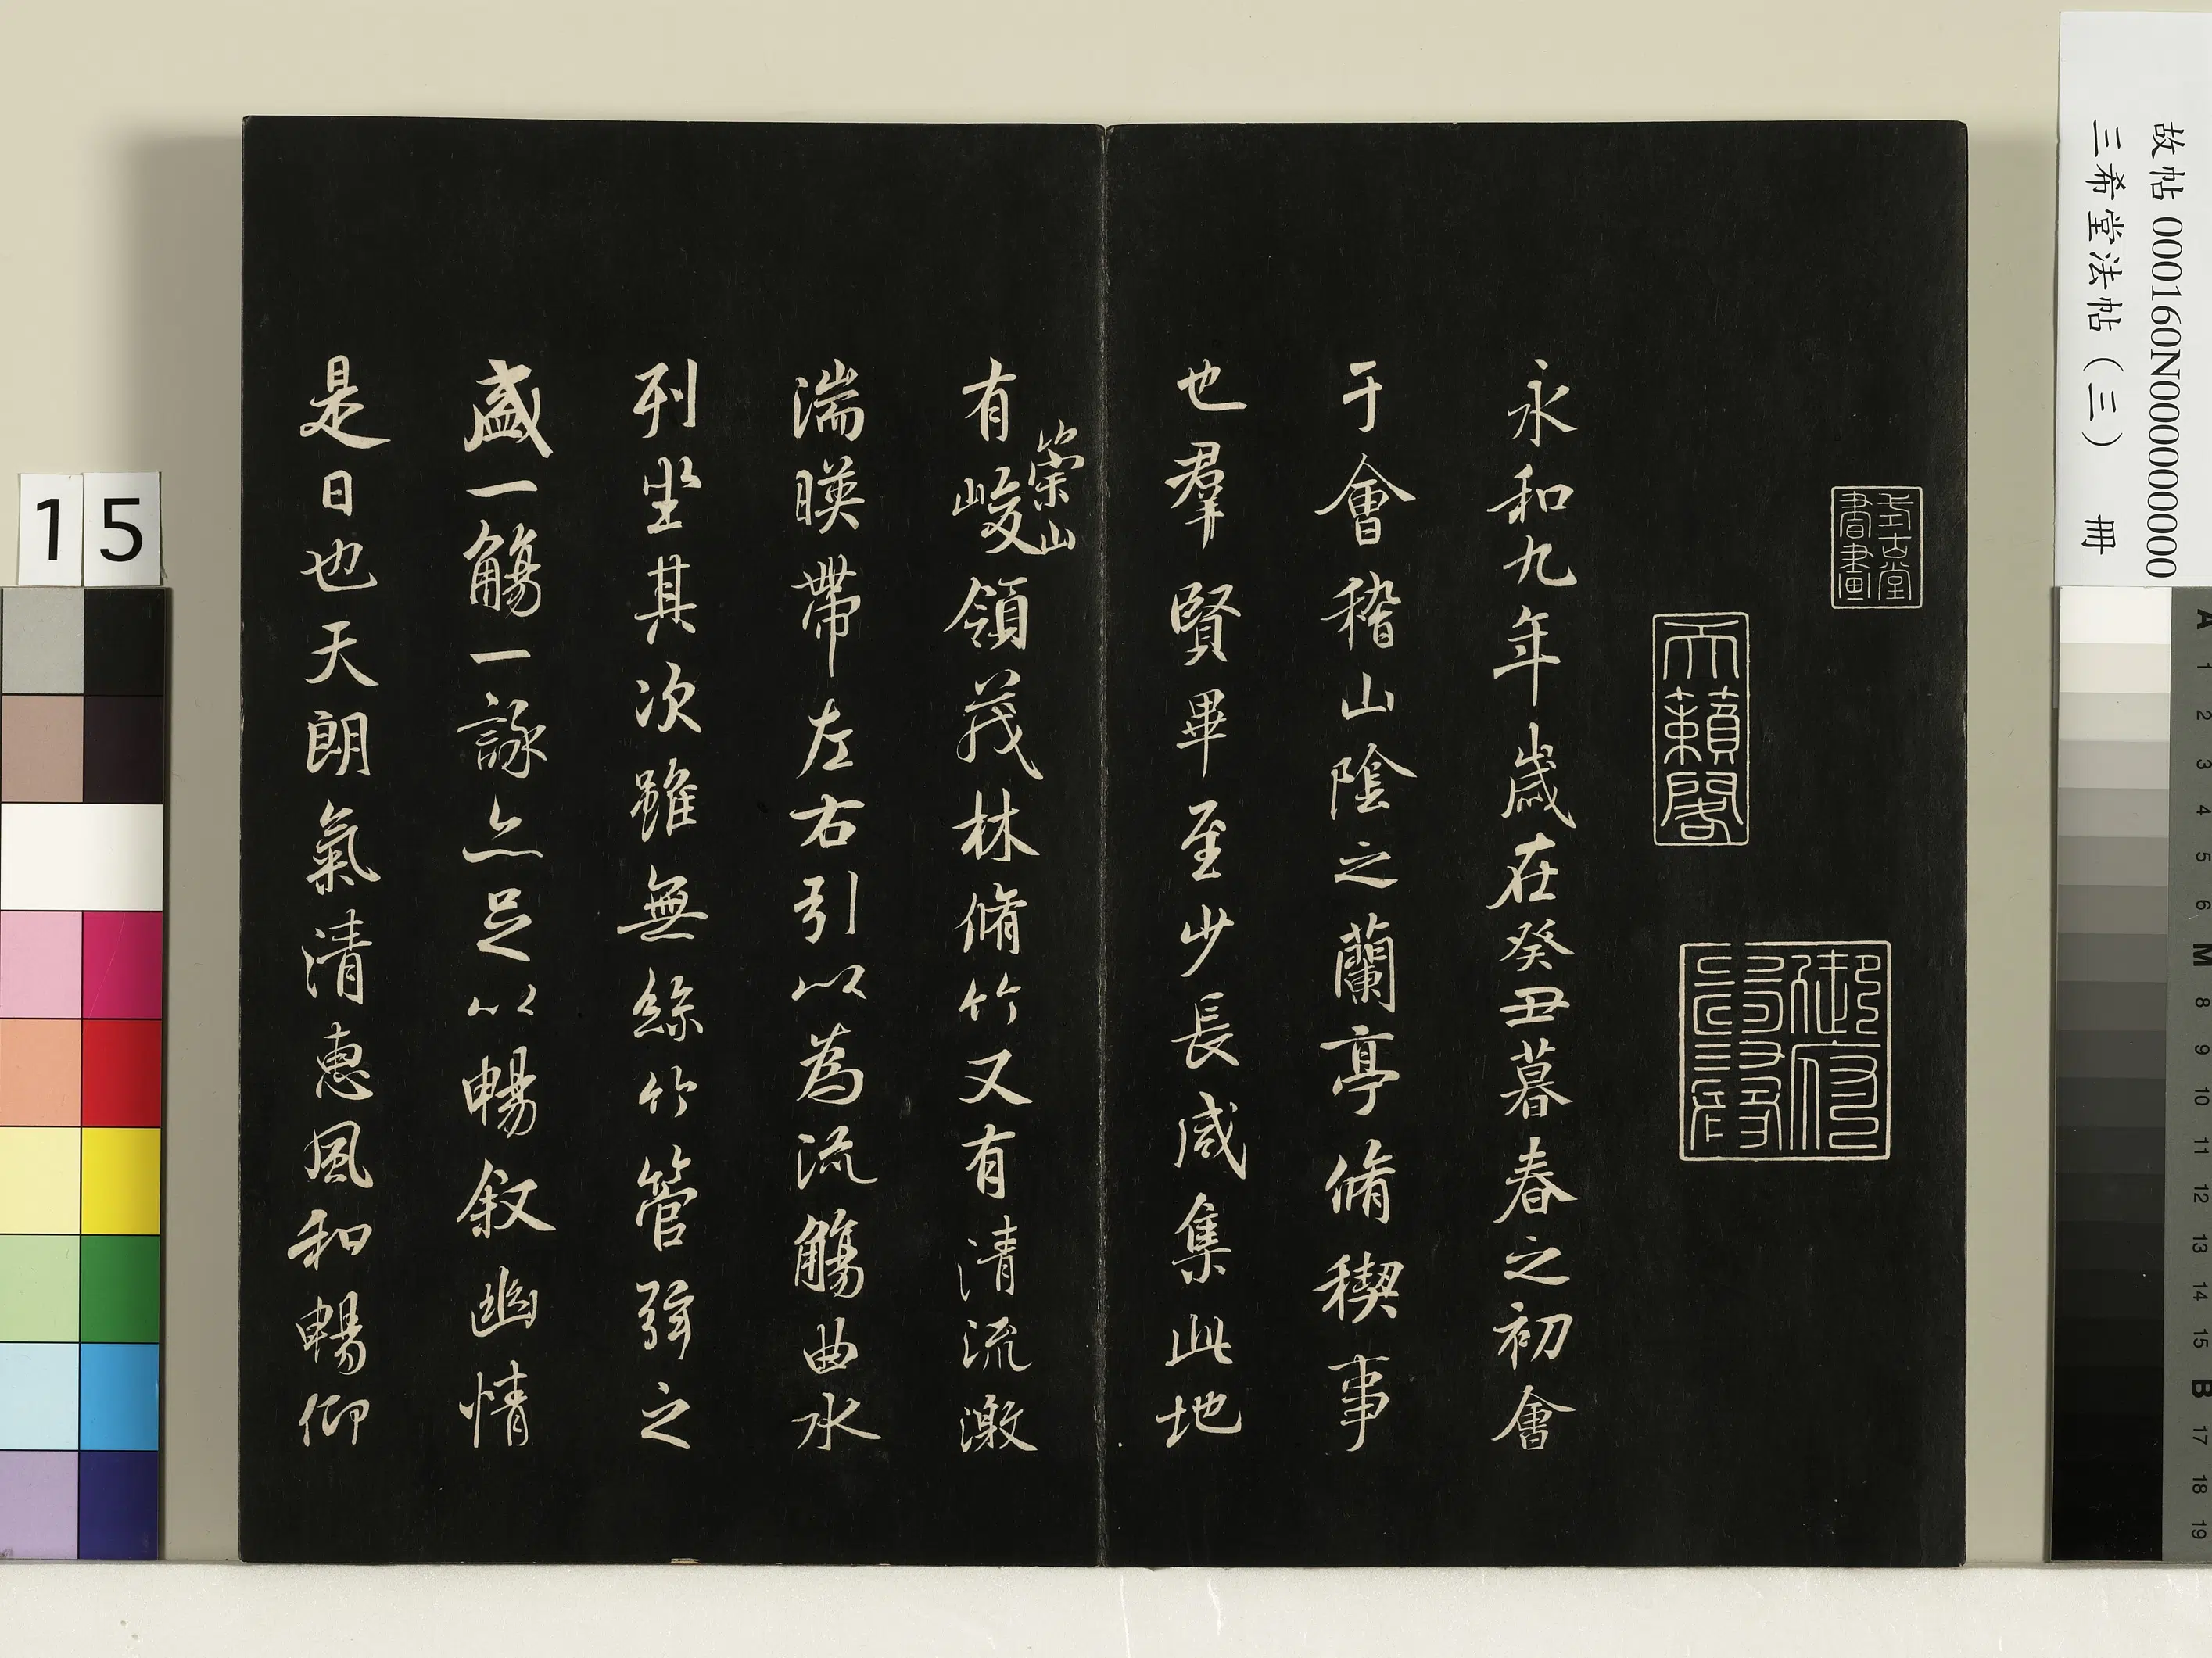 故帖 000160N000000000
三希堂法帖（三） 冊
式古堂
書畫
天籟閣
永和九年歲在癸丑暮春之初會
于會稽山陰之蘭亭脩稧事
也羣賢畢至少長咸集此地
有峻領茂林脩竹又有清流激
崇山
湍暎帶左右引以為流觴曲水
列坐其次雖無絲竹管弦之
盛一觴一詠亦足以暢叙幽情
是日也天朗氣清惠風和暢仰
15
A 1 2 3 4 5 6 M 8 9 10 11 12 13 14 15 B 17 18 19